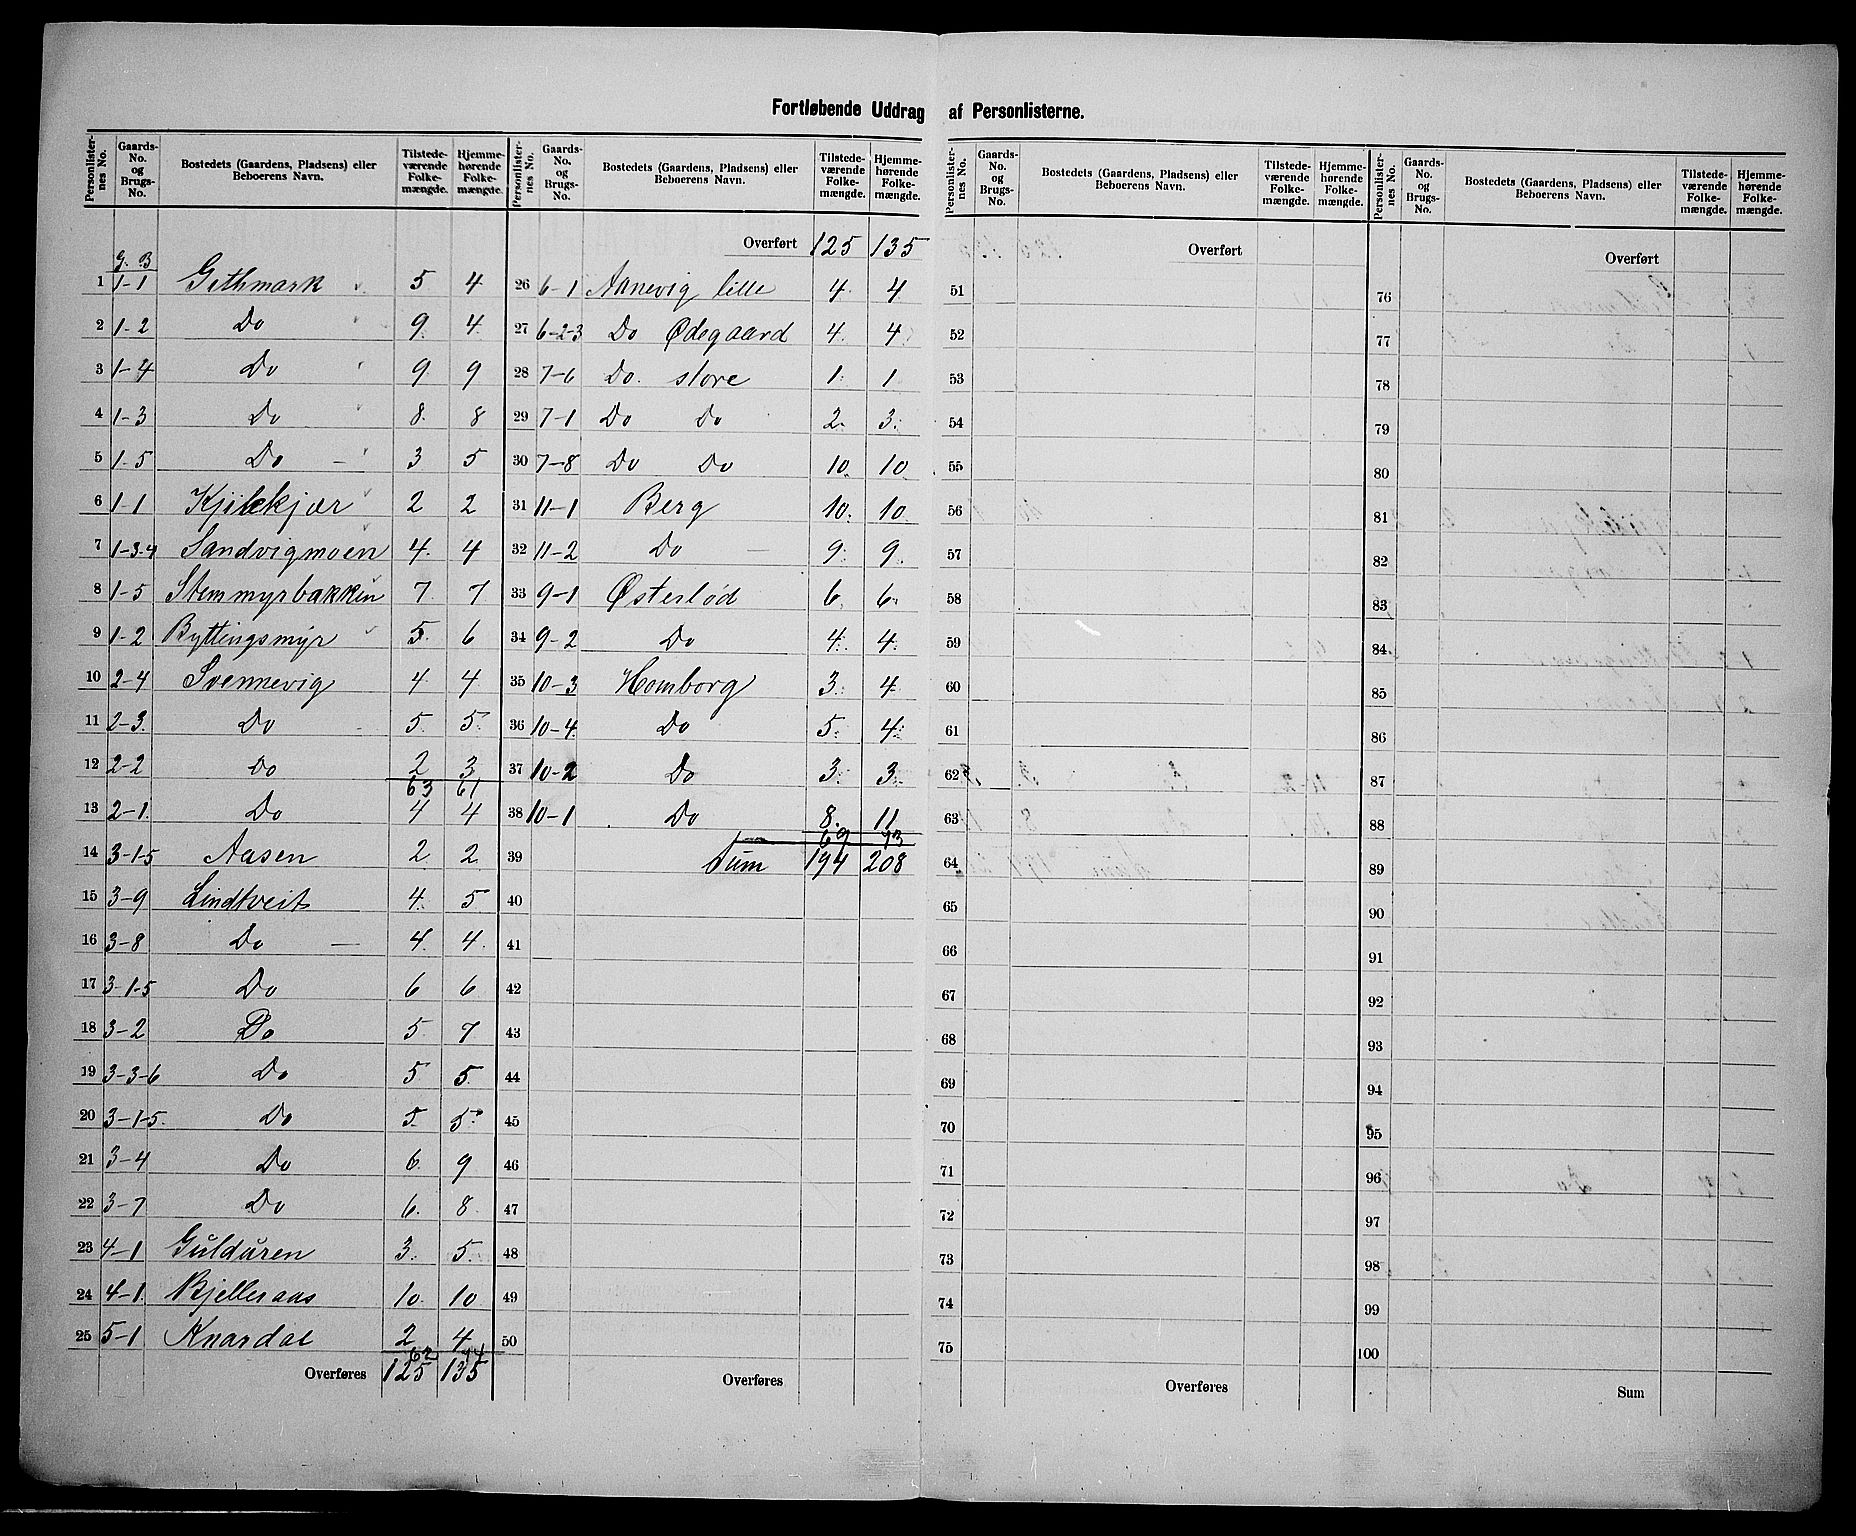 Fortløbende Uddrag af Personlisterne.
Personlisternes No. Gaards-No. og Brugs-No. Bostedets (Gaardens, Pladsens) eller Beboerens Navn. Tilstedeværende Folkemængde. Hjemmehørende Folkemængde.
G. B
1 1-1 Githmark 5 4
2 1-2 Do 9. 4.
3 1-4 Do 9 9
4 1-3 Do 8. 8
5 1-5 Do — 3 5
6 1-1 Kjilekjær 2 2
7 1-3-4 Sandvigmoen 4. 4
8 1-5 Stemmyrbakken 7. 7
9 1-2 Byttingsmyr 5. 6
10 2-4 Svennevig 4 4
11 2-3. Do 5. 5.
12 2-2 Do 2 3
63 61
13 2-1. Do 4 4
14 3-1-5 Aasen 2 2
15 3-9 Lindtveit 4. 5
16 3-8 Do — 4. 4.
17 3-1-5 Do 6 6
18 3-2 Do 5. 7
19 3-3-6 Do 5 5.
20 3-1-5. Do 5. 5.
21 3-4 Do 6. 9
22 3-7 Do 6. 8.
23 4-1 Gulduren 3. 5.
24 4-1. Bjelleraas 10. 10
25 5-1 Knardal 2 4
62 74
Overføres 125 135
Personlisternes No. Gaards-No. og Brugs-No. Bostedets (Gaardens, Pladsens) eller Beboerens Navn. Tilstedeværende Folkemængde. Hjemmehørende Folkemængde.
Overført 125 135
26 6-1 Aanevig lille 4. 4.
27 6-2-3 Do Ødegaard 4. 4.
28 7-6 Do. store 1. 1
29 7-1 Do Do 2. 3.
30 7-8 Do Do 10. 10.
31 11-1 Berg 10. 10.
32 11-2 Do — 9. 9.
33 9-1 Østerlød 6. 6.
34 9-2 Do 4. 4.
35 10-3 Homborg 3. 4.
36 10-4. Do 5. 4.
37 10-2 Do 3. 3.
38 10-1 Do 8. 11
69 73
39 Sum 194 208
40
41
42
43
44
45
46
47
48
49
50
Overføres
Personlisternes No. Gaards-No. og Brugs-No. Bostedets (Gaardens, Pladsens) eller Beboerens Navn. Tilstedeværende Folkemængde. Hjemmehørende Folkemængde.
Overført
51
52
53
54
55
56
57
58
59
60
61
62
63
64
65
66
67
68
69
70
71
72
73
74
75
Overføres
Personlisternes No. Gaards-No. og Brugs-No. Bostedets (Gaardens, Pladsens) eller Beboerens Navn. Tilstedeværende Folkemængde. Hjemmehørende Folkemængde.
Overført
76
77
78
79
80
81
82
83
84
85
86
87
88
89
90
91
92
93
94
95
96
97
98
99
100
Sum